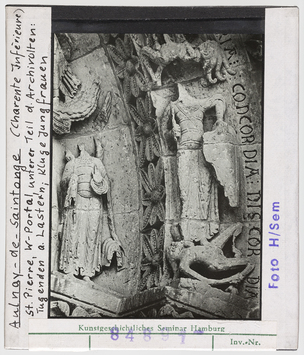 Aulnay-de Saintonge (Charente Inférieure)
St. Pierre, W-Portal, unterer Teil d. Archivolten:
Tugenden u. Laster, Kluge Jungfrauen
CONCORDIA: DISCORDIA
Foto H/Sem
Kunstgeschichtliches Seminar Hamburg
Inv.-Nr.